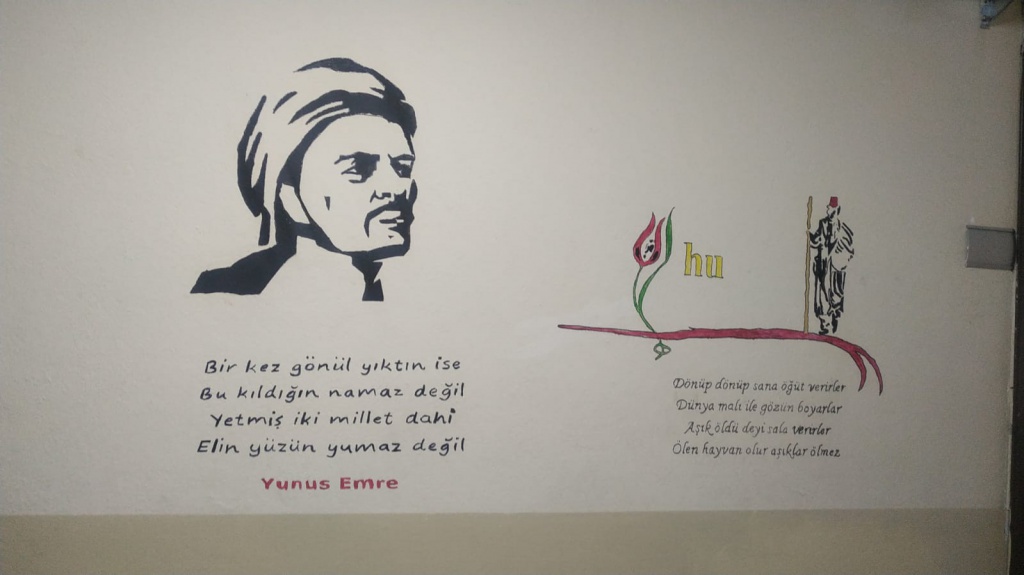 Bir kez gönül yıktın ise
Bu kıldığın namaz değil
Yetmiş iki millet dahi
Elin yüzün yumaz değil
Yunus Emre
hu
Dönüp dönüp sana öğüt verirler
Dünya malı ile gözün boyarlar
Aşık öldü deyi sala verirler
Ölen hayvan olur aşıklar ölmez